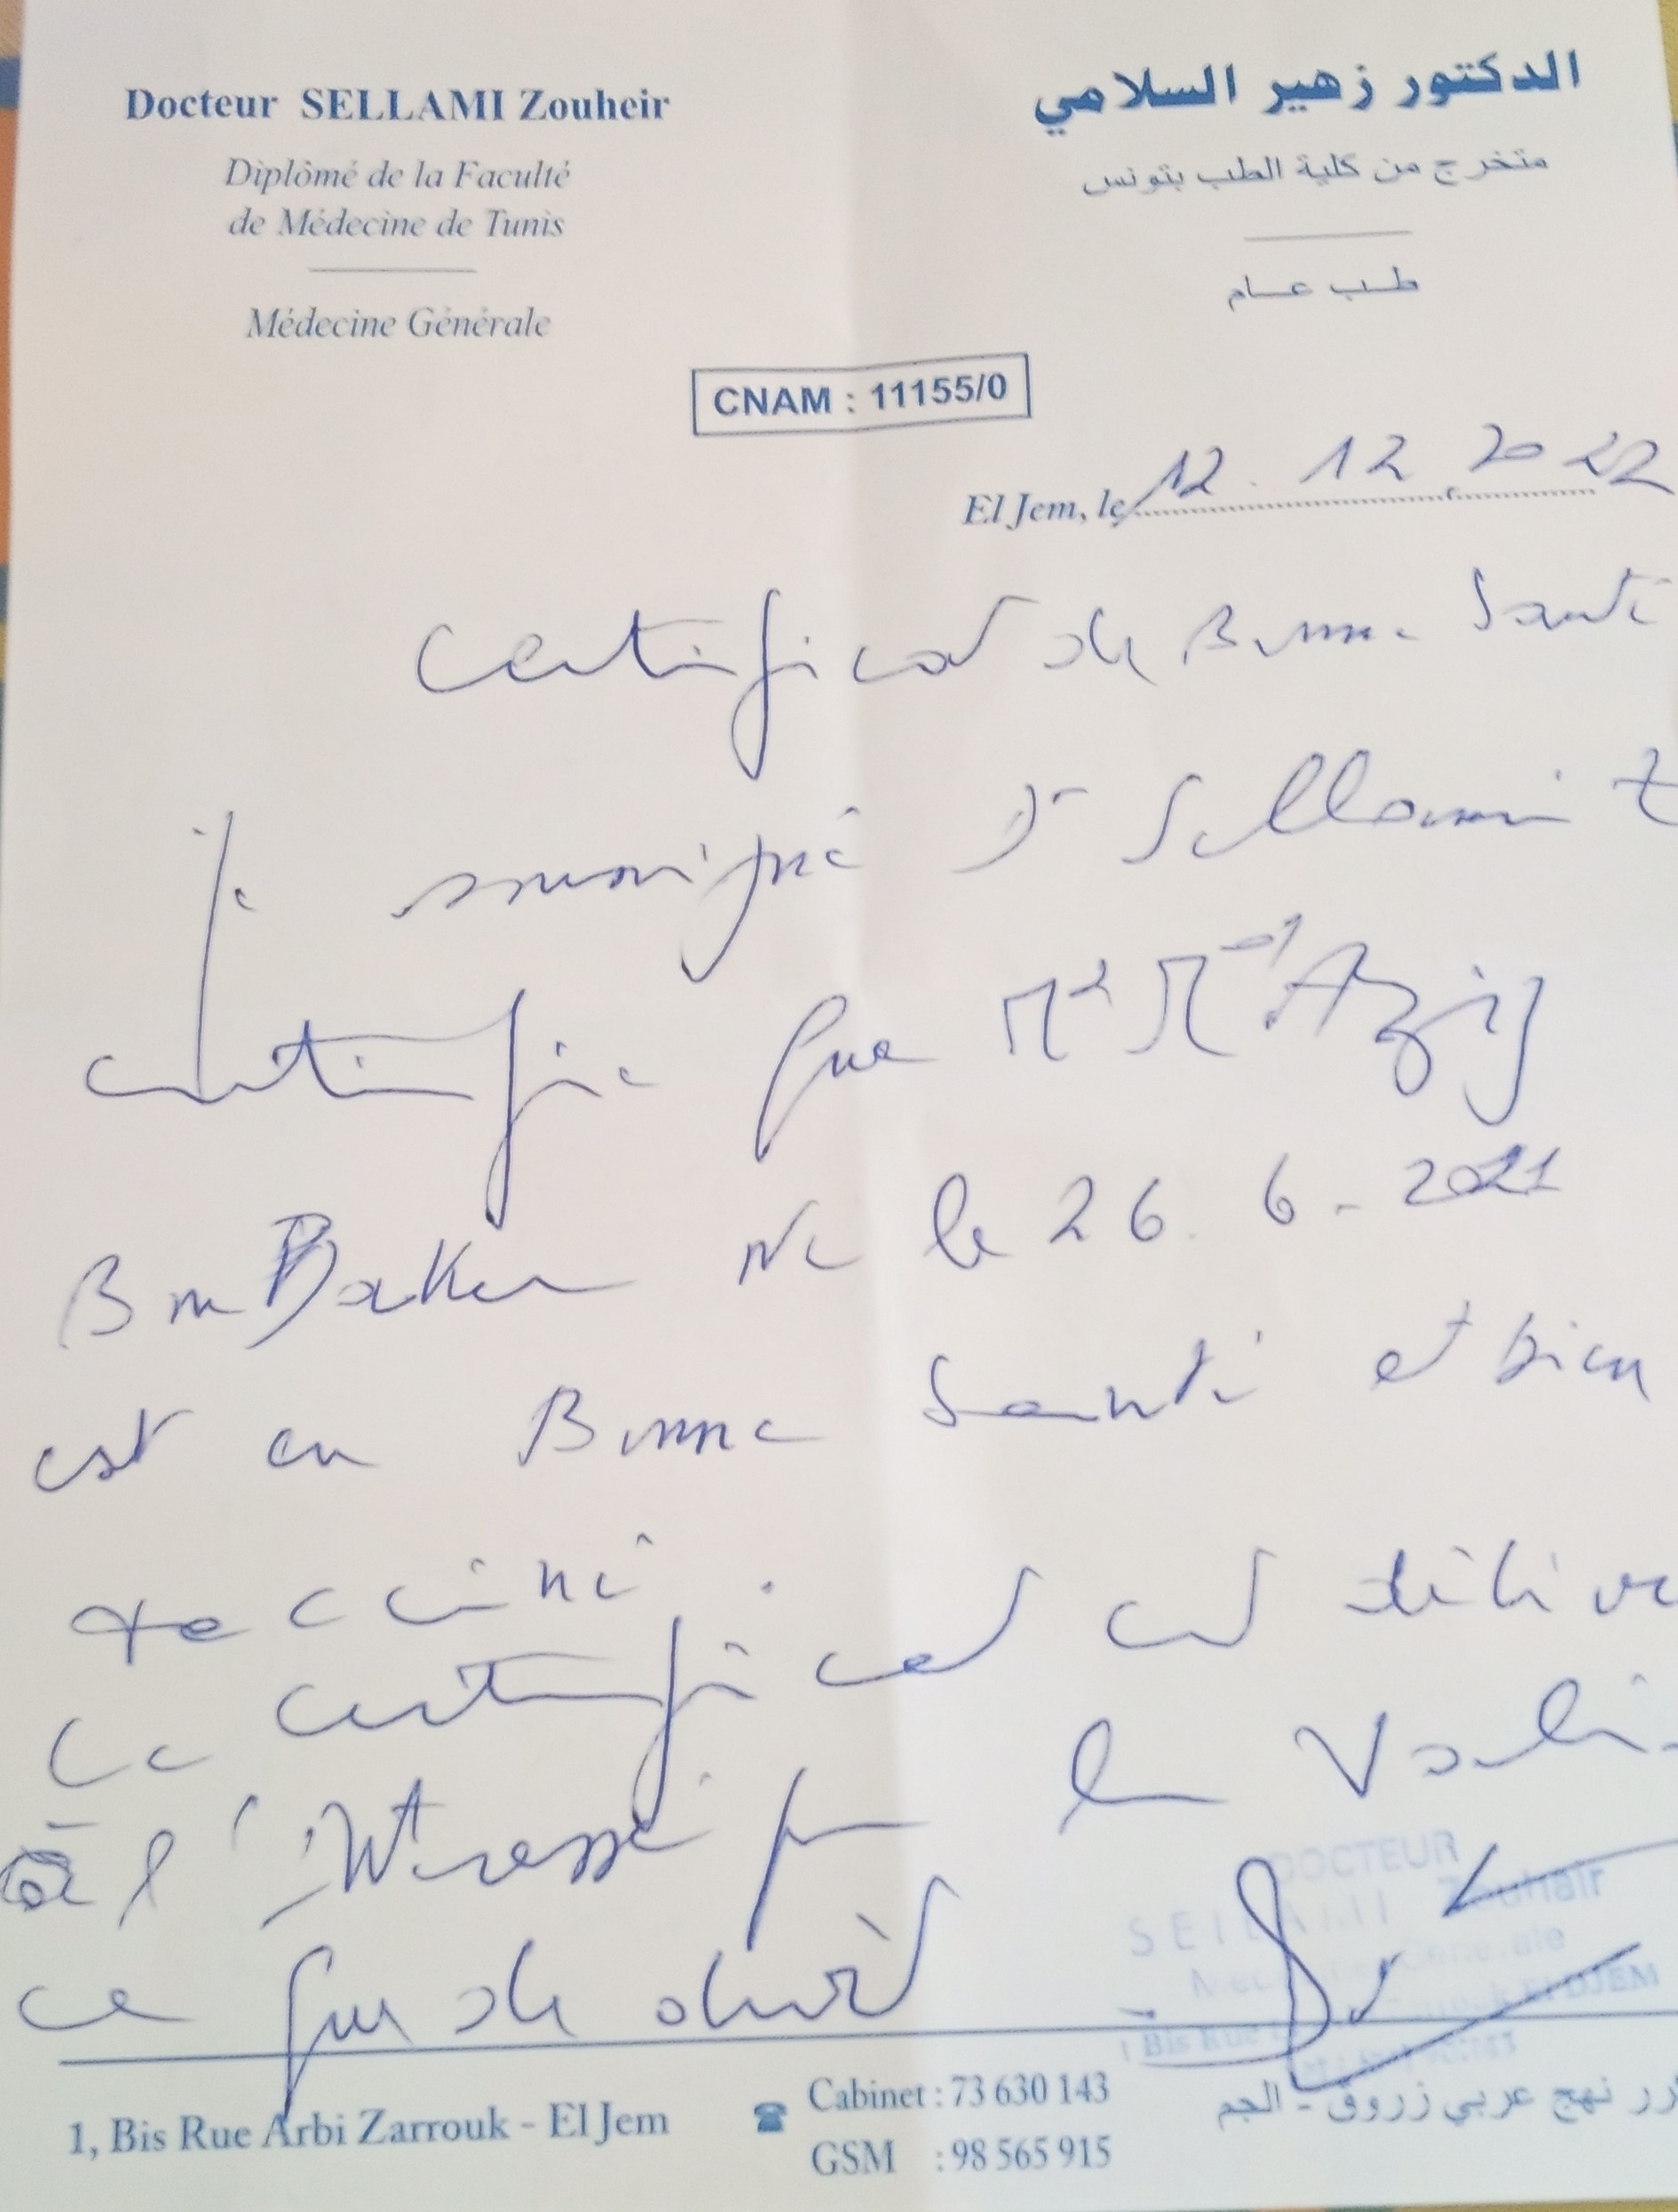 Docteur SELLAMI Zouheir
Diplômé de la Faculté
de Médecine de Tunis
Médecine Générale
الدكتور زهير السلامي
متخرج من كلية الطب بتونس
طب عام
CNAM : 11155/0
El Jem, le 12.12.2022
Certificat de Bonne Santé
Je soussigné Dr Sellami Z
certifie que Mr Med Aziz
Ben Baker Né le 26.6-2021
est en Bonne Santé et bien
vacciné.
Ce certificat est délivré
à l'intéressé pour le valoir
ce que de droit
DOCTEUR
SELLAMI Zouhair
Médecine Générale
1 Bis Rue EL DJEM
1, Bis Rue Arbi Zarrouk - El Jem
Cabinet : 73 630 143
GSM : 98 565 915
نهج عربي زروق - الجم